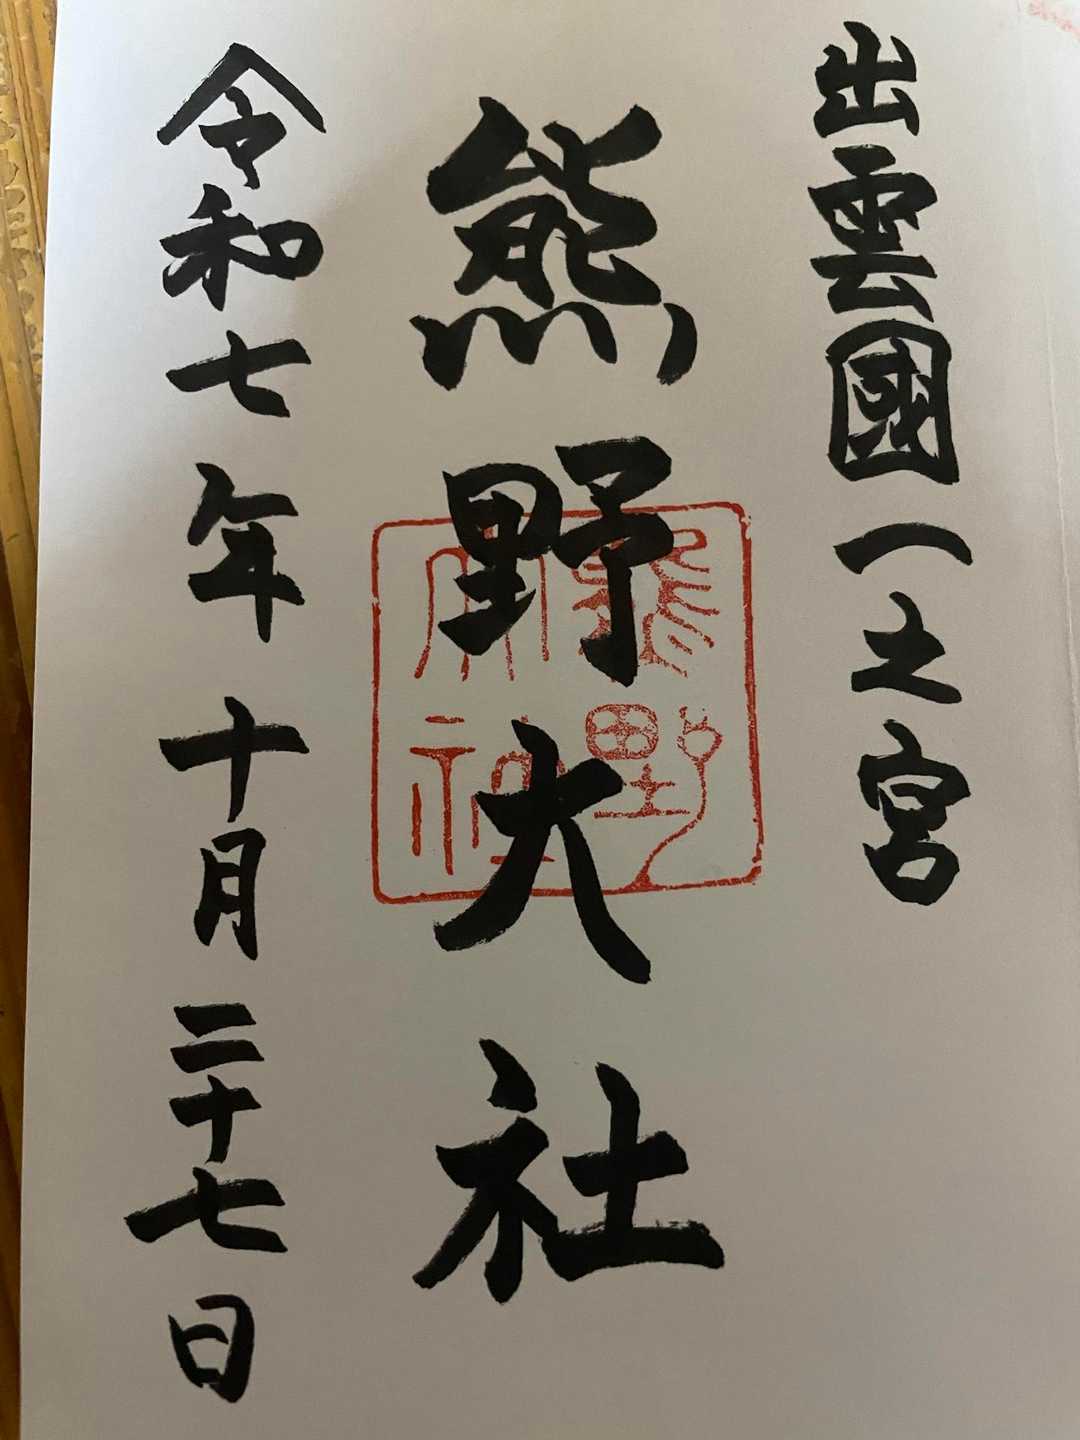 出雲國一之宮
熊野大社
熊野大社
令和七年十月二十七日